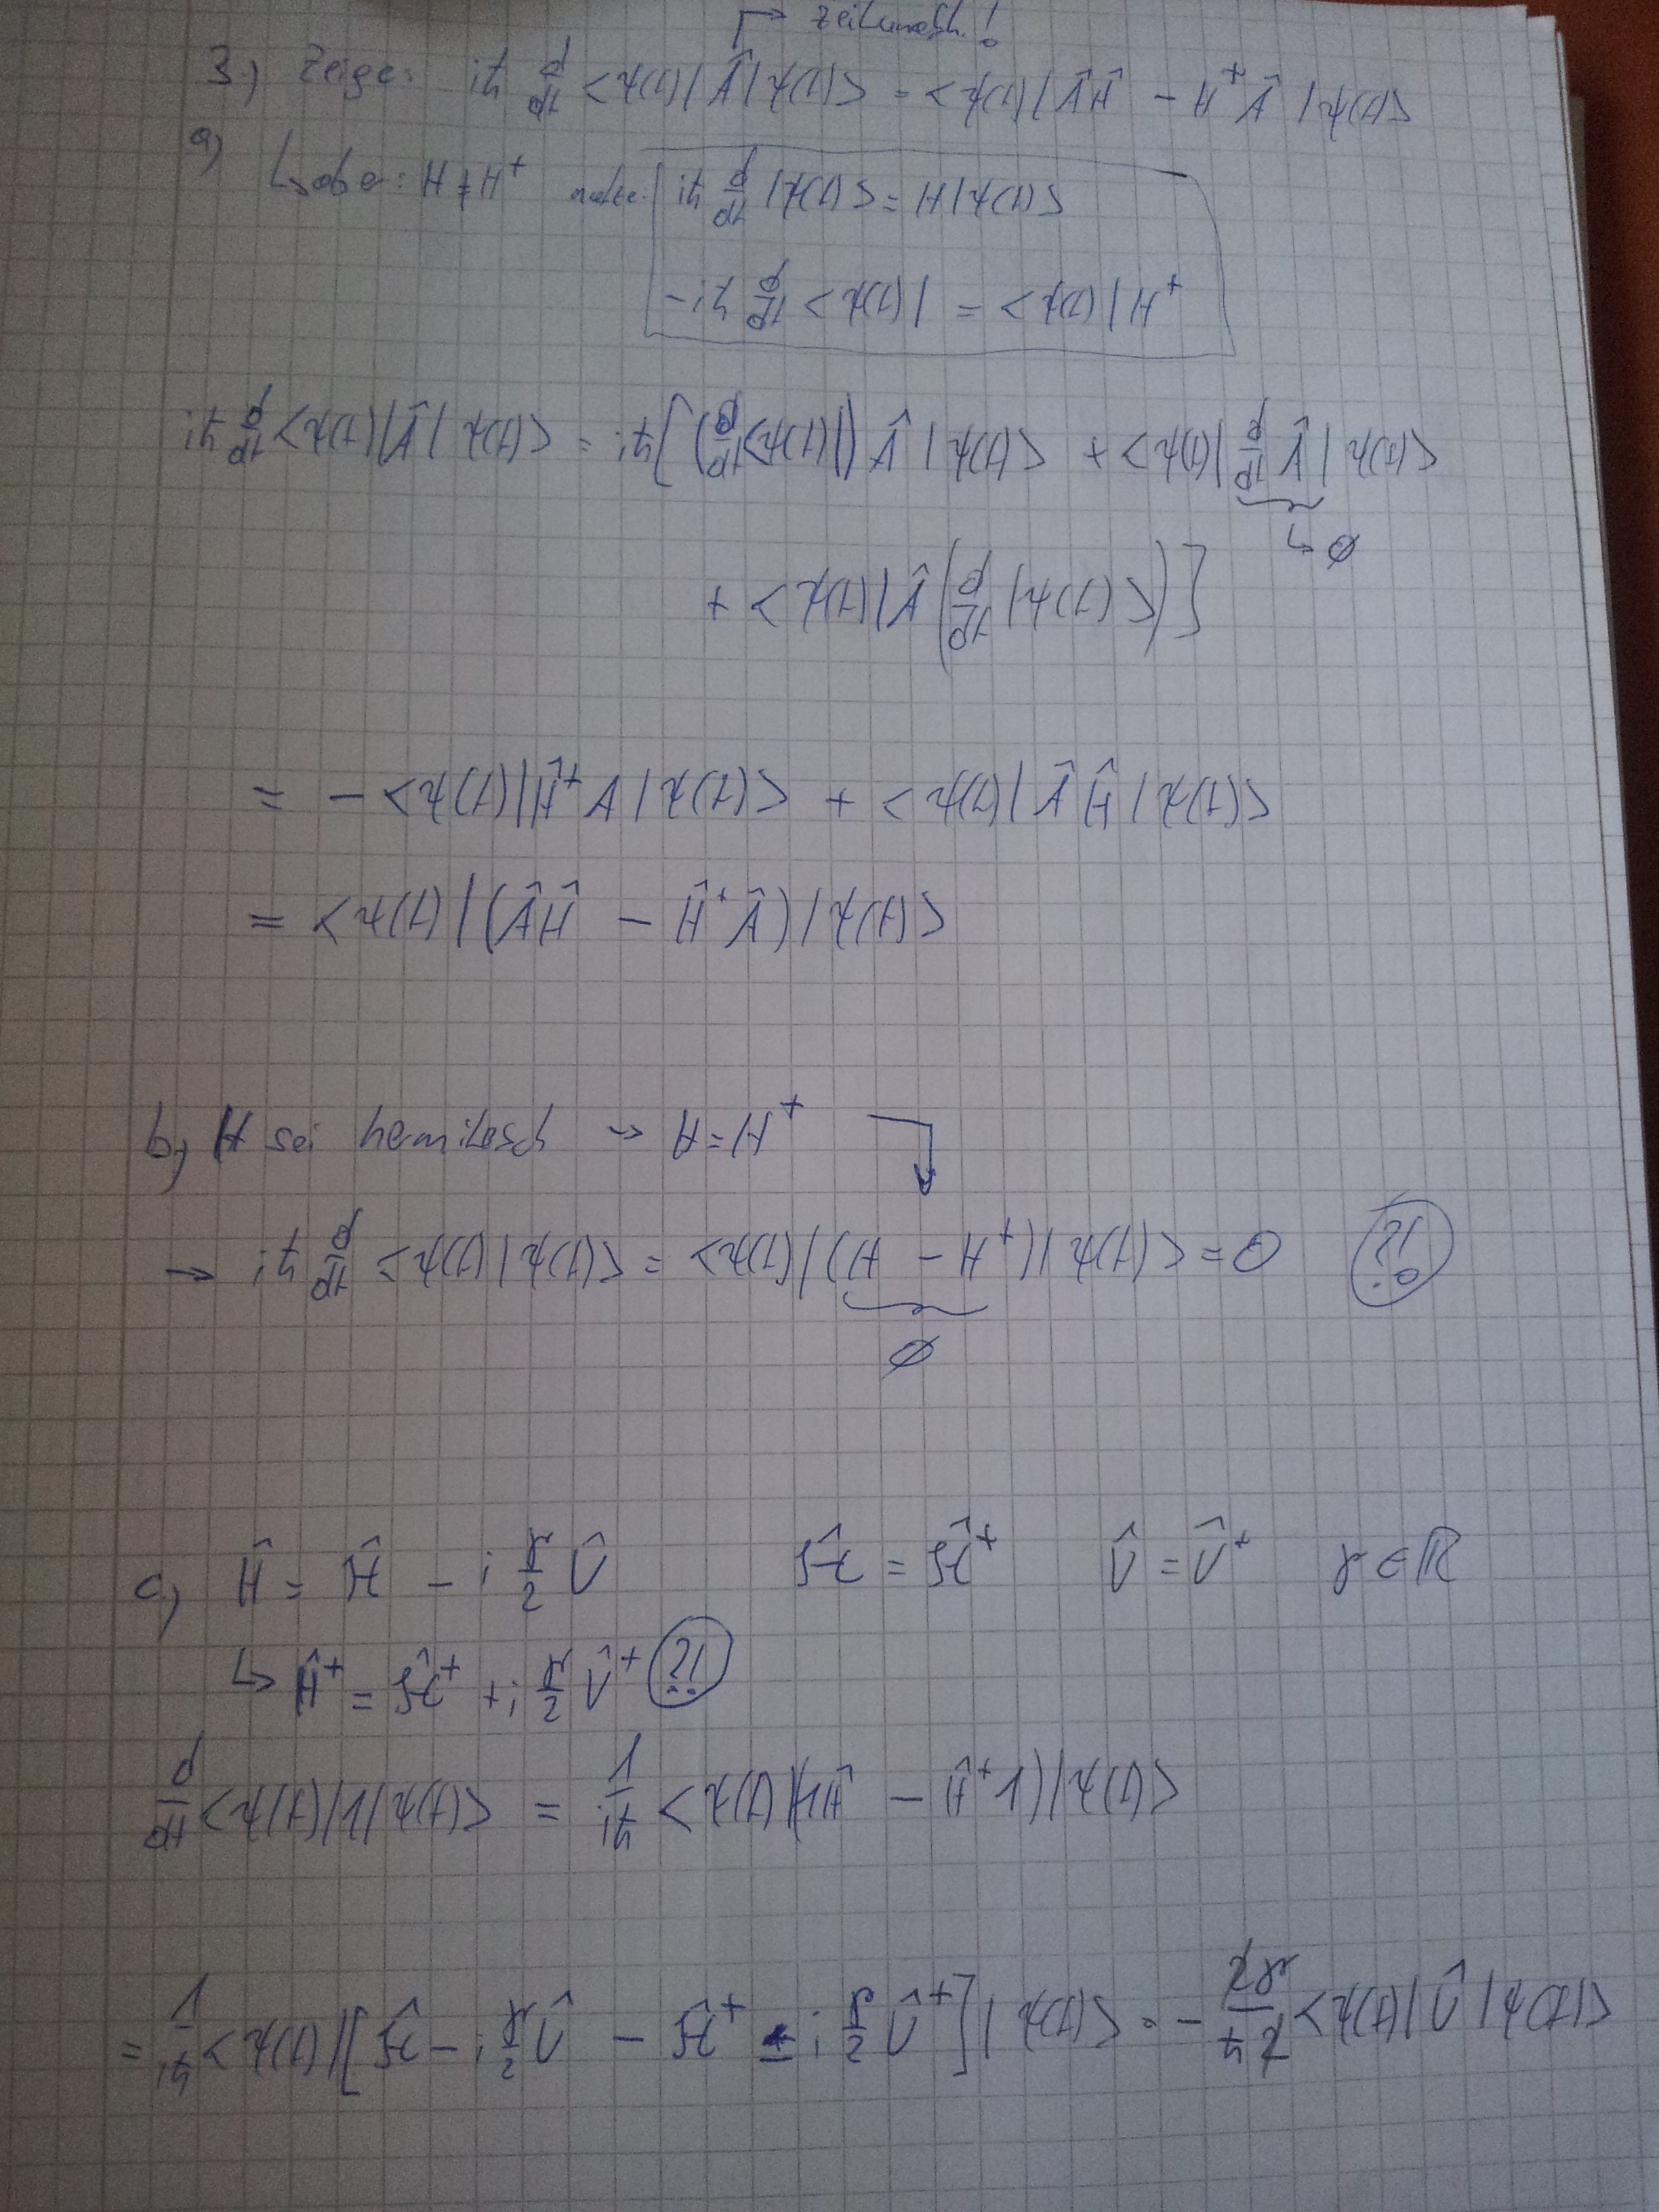 ↱ zeitunabh.!
3.) Zeige: iħ d/dt <ψ(t)|Â|ψ(t)> = <ψ(t)|ÂĤ - H⁺Â|ψ(t)>
a) ↳ aber: H ≠ H⁺ nutze: iħ d/dt |ψ(t)> = H|ψ(t)>
-iħ d/dt <ψ(t)| = <ψ(t)|H⁺
iħ d/dt <ψ(t)|Â|ψ(t)> = iħ[(d/dt <ψ(t)|) Â|ψ(t)> + <ψ(t)| d/dt Â|ψ(t)>
↳ ∅
+ <ψ(t)|Â(d/dt |ψ(t)>)]
= - <ψ(t)|Ĥ⁺A|ψ(t)> + <ψ(t)|ÂĤ|ψ(t)>
= <ψ(t)|(ÂĤ - Ĥ⁺Â)|ψ(t)>
b) H sei hermitesch → H = H⁺
→ iħ d/dt <ψ(t)|ψ(t)> = <ψ(t)|(H - H⁺)|ψ(t)> = 0 ?!
∅
c) Ĥ = ℋ̂ - i γ/2 Û ℋ̂ = ℋ̂⁺ Û = Û⁺ γ ∈ ℝ
↳ Ĥ⁺ = ℋ̂⁺ + i γ/2 Û⁺ ?!
d/dt <ψ(t)|1|ψ(t)> = 1/iħ <ψ(t)|(1Ĥ - Ĥ⁺1)|ψ(t)>
= 1/iħ <ψ(t)|[ℋ̂ - i γ/2 Û - ℋ̂⁺ - i γ/2 Û⁺]|ψ(t)> = - 2γ/ħ2 <ψ(t)|Û|ψ(t)>